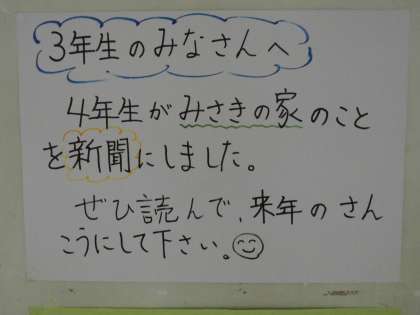 3年生のみなさんへ
4年生がみさきの家のこと
を新聞にしました。
ぜひ読んで、来年のさん
こうにして下さい。